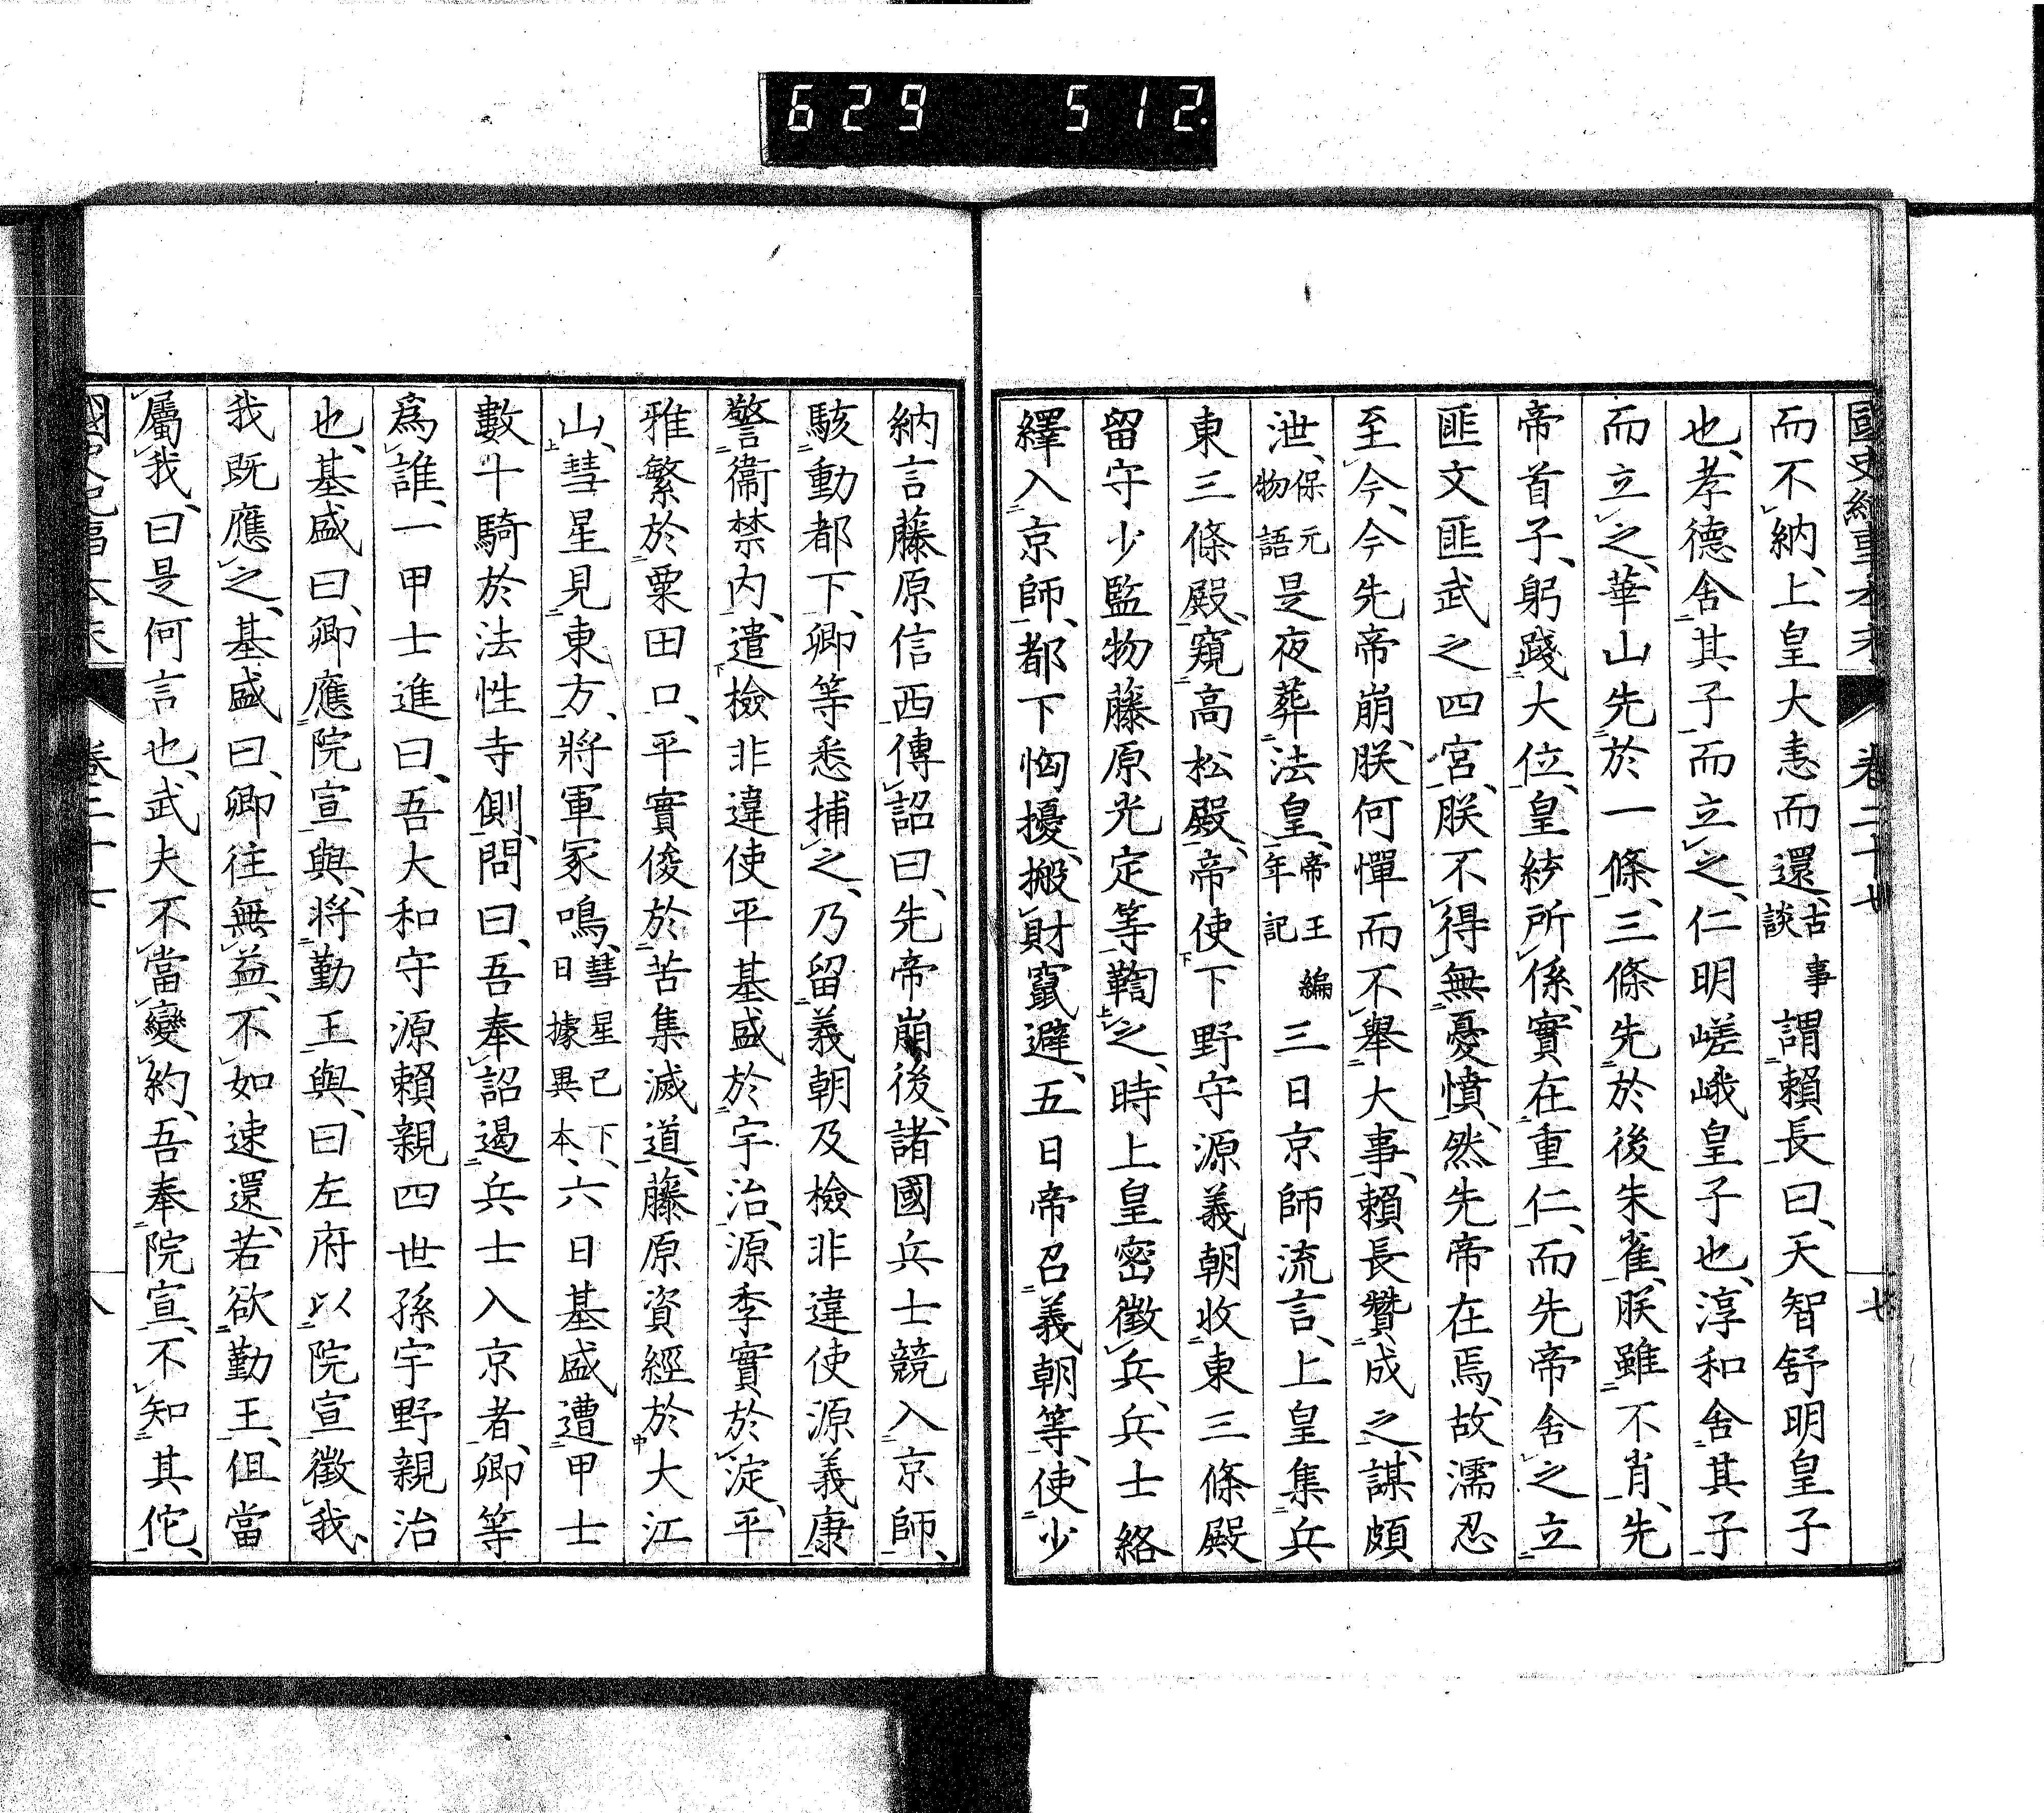 629 512.
國史紀事本末 卷二十七 七
而不納、上皇大恚而還、古事談謂賴長曰、天智舒明皇子
也、孝德舍其子而立之、仁明嵯峨皇子也、淳和舍其子
而立之、華山先於一條、三條先於後朱雀、朕雖不肖、先
帝首子、躬踐大位、皇統所係、實在重仁、而先帝舍之立
匪文匪武之四宮、朕不得無憂憤、然先帝在焉、故濡忍
至今、今先帝崩、朕何憚而不舉大事、賴長贊成之、謀頗
泄、保元物語是夜葬法皇、帝王編年記三日京師流言、上皇集兵
東三條殿、窺高松殿、帝使下野守源義朝收東三條殿
留守少監物藤原光定等鞫之、時上皇密徵兵、兵士絡
繹入京師、都下恟擾、搬財竄避、五日帝召義朝等、使少
納言藤原信西傳詔曰、先帝崩後、諸國兵士競入京師、
駭動都下、卿等悉捕之、乃留義朝及檢非違使源義康
警衞禁內、遣檢非違使平基盛於宇治、源季實於淀、平
雅繁於粟田口、平實俊於苦集滅道、藤原資經於大江
山、彗星見東方、將軍冢鳴、彗星已下、日據異本、六日基盛遭甲士
數十騎於法性寺側、問曰、吾奉詔遏兵士入京者、卿等
爲誰、一甲士進曰、吾大和守源賴親四世孫宇野親治
也、基盛曰、卿應院宣與、將勤王與、曰左府以院宣徵我、
我既應之、基盛曰、卿往無益、不如速還、若欲勤王、但當
屬我、曰是何言也、武夫不當變約、吾奉院宣、不知其佗、
國史紀事本末 卷二十七 八